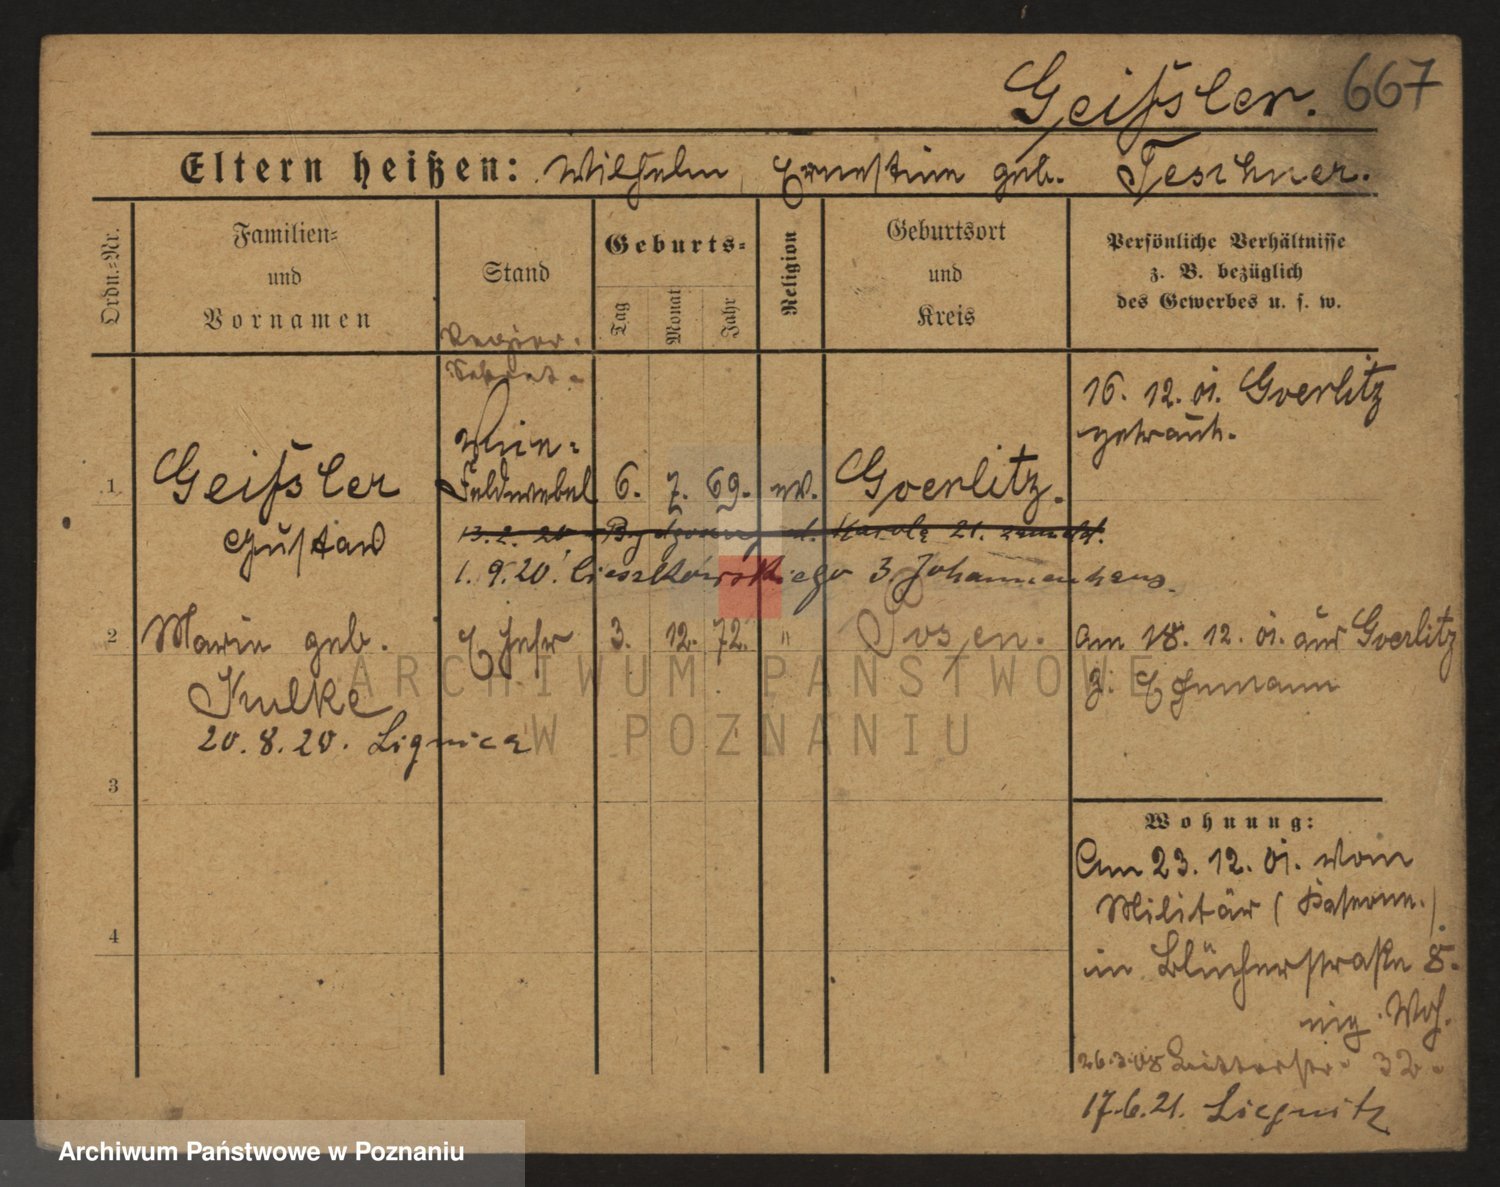 Geißler. 667
Eltern heißen: Wilhelm, Ernestine geb. Teschner.
Ordn.-Nr.
Familien-
und
Vornamen
Stand
Geburts-
Tag
Monat
Jahr
Religion
Geburtsort
und
Kreis
Persönliche Verhältnisse
z. B. bezüglich
des Gewerbes u. s. w.
16. 12. 01. Goerlitz
getraut.
1 Geißler Feldwebel 6. 7. 69. ev. Goerlitz.
Gustav
13. 2. 20. Bydgoszcz
1. 9. 20. Cieszkowskiego 3. Johannenhaus.
2 Marie geb. Ehefr 3. 12. 72. " Posen. Am 18. 12. 01. aus Goerlitz
Kulke z. Ehemann
20. 8. 20. Lignica
3
Wohnung:
Am 23. 12. 01. vom
Militär (Kaserne.)
4
in Blücherstraße 8.
eig. Woh.
26.3.08 32.
17.6.21. Liegnitz
ARCHIWUM PAŃSTWOWE
W POZNANIU
Archiwum Państwowe w Poznaniu